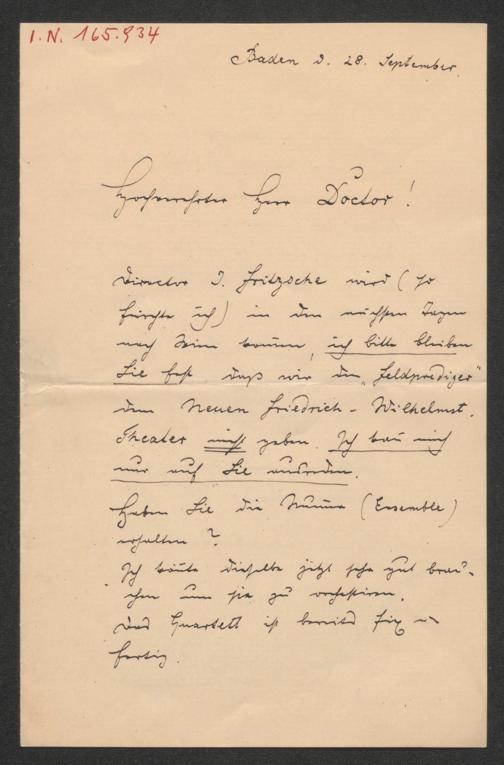 I.N. 165.934
Baden d. 28. September.
Hochverehrter Herr Doctor!
Director J. Fritzsche wird (so
fürchte ich) in den nächsten Tagen
nach Wien kommen, ich bitte bleiben
Sie fest daß wir den „Feldprediger"
dem Neuen Friedrich-Wilhelmst.
Theater nicht geben. Ich kann mich
nur auf Sie ausreden.
Haben Sie die Nummer (Ensemble)
erhalten?
Ich könnte dieselbe jetzt sehr gut brau-
chen um sie zu orchestriren.
Das Quartett ist bereits fix u
fertig.